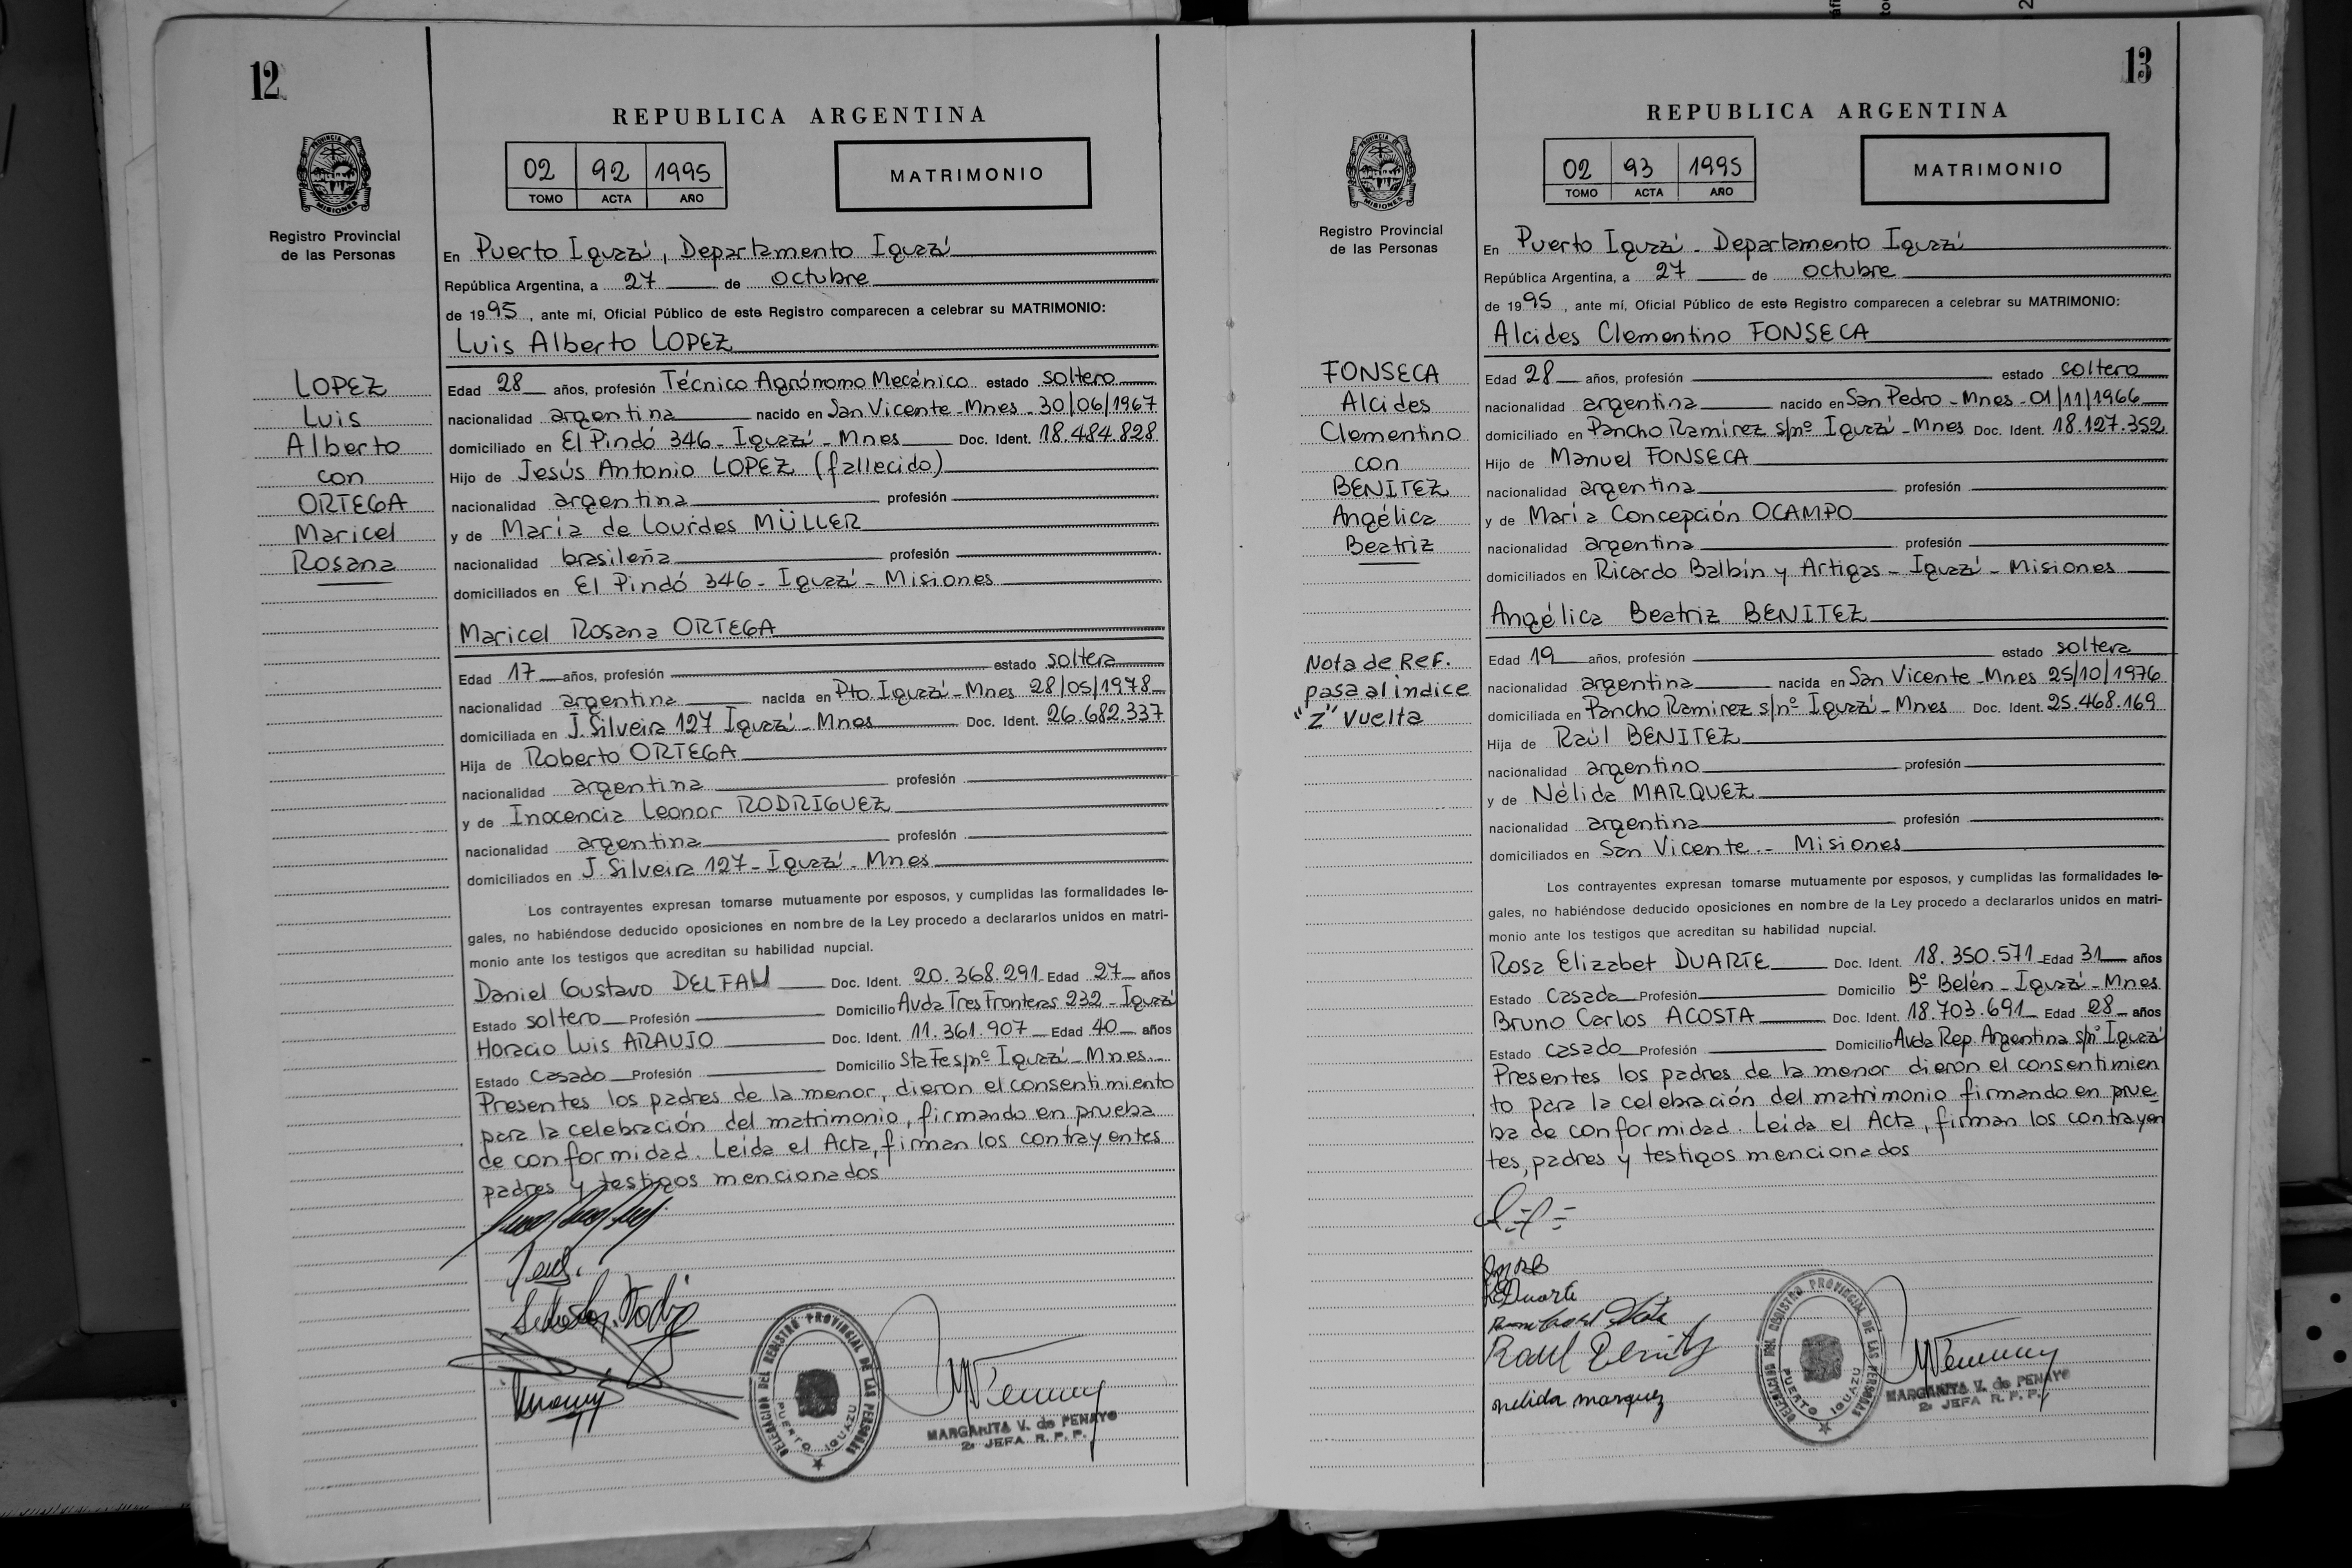 12
REPUBLICA ARGENTINA
02 92 1995
TOMO ACTA AÑO
MATRIMONIO
PROVINCIA DE MISIONES
Registro Provincial
de las Personas
LOPEZ
Luis
Alberto
con
ORTEGA
Maricel
Rosana
En Puerto Iguazú, Departamento Iguazú
República Argentina, a 27 de octubre
de 1995, ante mí, Oficial Público de este Registro comparecen a celebrar su MATRIMONIO:
Luis Alberto LOPEZ
Edad 28 años, profesión Técnico Agrónomo Mecánico estado soltero
nacionalidad argentina nacido en San Vicente-Mnes-30/06/1967
domiciliado en El Pindó 346-Iguazú-Mnes Doc. Ident. 18.484.828
Hijo de Jesús Antonio LOPEZ (fallecido)
nacionalidad argentina profesión
y de María de Lourdes MÜLLER
nacionalidad brasileña profesión
domiciliados en El Pindó 346-Iguazú-Misiones
Maricel Rosana ORTEGA
Edad 17 años, profesión estado soltera
nacionalidad argentina nacida en Pto. Iguazú-Mnes 28/05/1978
domiciliada en J. Silveira 127 Iguazú-Mnes Doc. Ident. 26.682.337
Hija de Roberto ORTEGA
nacionalidad argentina profesión
y de Inocencia Leonor RODRIGUEZ
nacionalidad argentina profesión
domiciliados en J. Silveira 127-Iguazú-Mnes
Los contrayentes expresan tomarse mutuamente por esposos, y cumplidas las formalidades le-
gales, no habiéndose deducido oposiciones en nombre de la Ley procedo a declararlos unidos en matri-
monio ante los testigos que acreditan su habilidad nupcial.
Daniel Gustavo DELFAU Doc. Ident. 20.368.291 Edad 27 años
Estado soltero Profesión Domicilio Avda Tres Fronteras 232-Iguazú
Horacio Luis ARAUJO Doc. Ident. 11.361.907 Edad 40 años
Estado Casado Profesión Domicilio Sta Fe s/nº Iguazú-Mnes
Presentes los padres de la menor, dieron el consentimiento
para la celebración del matrimonio, firmando en prueba
de conformidad. Leída el Acta, firman los contrayentes
padres y testigos mencionados
DELEGACION DEL REGISTRO PROVINCIAL DE LAS PERSONAS
PUERTO IGUAZU
MARGARITA V. de PENAYO
2ª JEFA R. P. P.
13
REPUBLICA ARGENTINA
02 93 1995
TOMO ACTA AÑO
MATRIMONIO
PROVINCIA DE MISIONES
Registro Provincial
de las Personas
FONSECA
Alcides
Clementino
con
BENITEZ
Angélica
Beatriz
Nota de Ref.
pasa al índice
"Z" vuelta
En Puerto Iguazú-Departamento Iguazú
República Argentina, a 27 de octubre
de 1995, ante mí, Oficial Público de este Registro comparecen a celebrar su MATRIMONIO:
Alcides Clementino FONSECA
Edad 28 años, profesión estado soltero
nacionalidad argentina nacido en San Pedro-Mnes-01/11/1966
domiciliado en Pancho Ramírez s/nº Iguazú-Mnes Doc. Ident. 18.127.352
Hijo de Manuel FONSECA
nacionalidad argentina profesión
y de María Concepción OCAMPO
nacionalidad argentina profesión
domiciliados en Ricardo Balbín y Artigas-Iguazú-Misiones
Angélica Beatriz BENITEZ
Edad 19 años, profesión estado soltera
nacionalidad argentina nacida en San Vicente-Mnes 25/10/1976
domiciliada en Pancho Ramirez s/nº Iguazú-Mnes Doc. Ident. 25.468.169
Hija de Raúl BENITEZ
nacionalidad argentino profesión
y de Nélida MARQUEZ
nacionalidad argentina profesión
domiciliados en San Vicente.- Misiones
Los contrayentes expresan tomarse mutuamente por esposos, y cumplidas las formalidades le-
gales, no habiéndose deducido oposiciones en nombre de la Ley procedo a declararlos unidos en matri-
monio ante los testigos que acreditan su habilidad nupcial.
Rosa Elizabet DUARTE Doc. Ident. 18.350.571 Edad 31 años
Estado Casada Profesión Domicilio Bº Belén-Iguazú-Mnes
Bruno Carlos ACOSTA Doc. Ident. 18.703.691 Edad 28 años
Estado casado Profesión Domicilio Avda Rep. Argentina s/nº Iguazú
Presentes los padres de la menor dieron el consentimien
to para la celebración del matrimonio firmando en prue
ba de conformidad. Leída el Acta, firman los contrayen
tes, padres y testigos mencionados
Duarte
Raul Benitez
nelida marquez
DELEGACION DEL REGISTRO PROVINCIAL DE LAS PERSONAS
PUERTO IGUAZU
MARGARITA V. de PENAYO
2ª JEFA R. P. P.